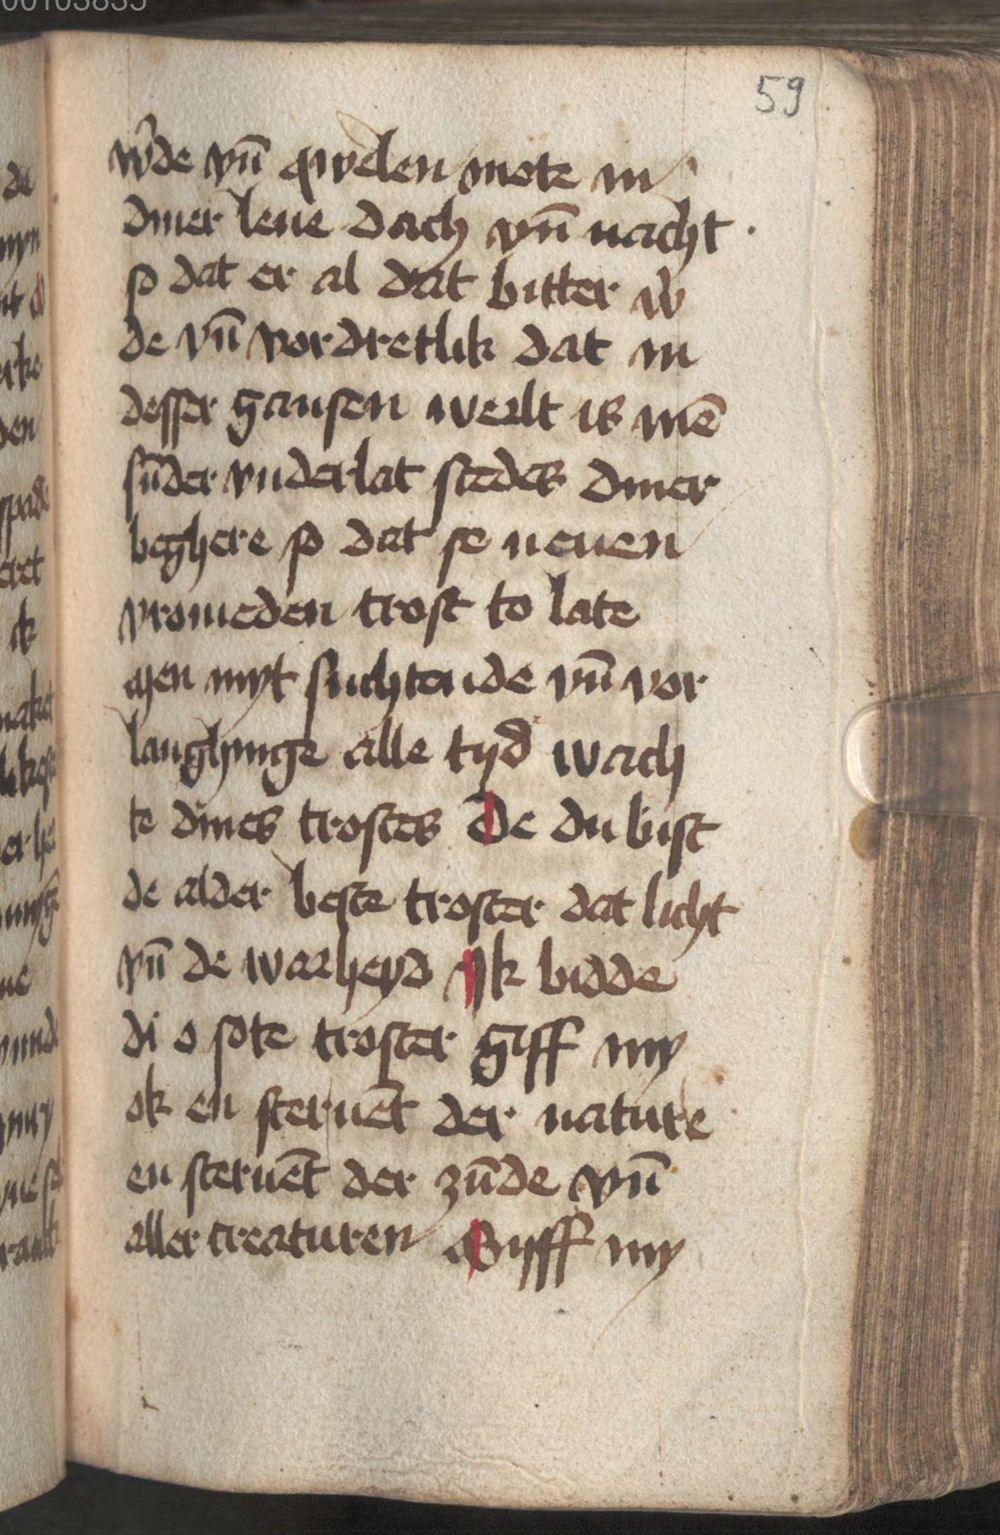 59
wͤde vn̄ qwelen mote in
diner leue dach vn̄ nacht ·
so dat er al dat bitter wͤ
de vn̄ vordretlik dat in
desser gansen werlt is mē
sūder vnderlat stedes diner
beghere so dat se nenen
vromeden trost to late
men myt suchtende vn̄ vor
langhinge alle tijd wach
te dines trostes De du bist
de alder beste troster dat licht
vn̄ de warheyd Jk bidde
di o sote troster giff my
ok en steruēt der nature
en steruēt der zūde vn̄
aller creaturen Gyff my